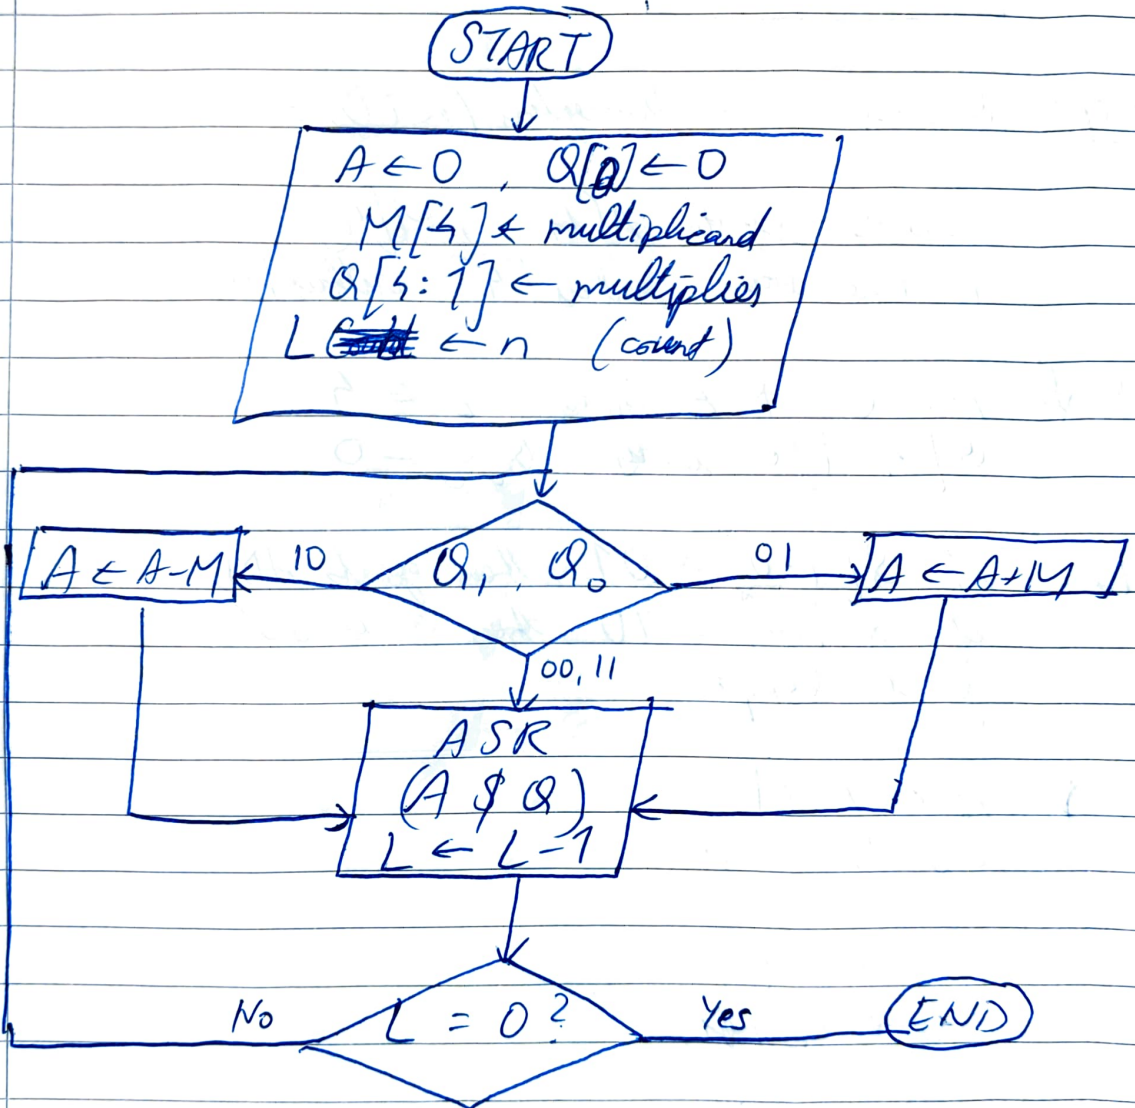 START
A ← 0 , Q[0] ← 0
M[4] ← multiplicand
Q[4:1] ← multiplier
L ← n (count)
Q1, Q0
10
01
A ← A-M
A ← A+M
00, 11
ASR
(A $ Q)
L ← L-1
L = 0?
No
Yes
END